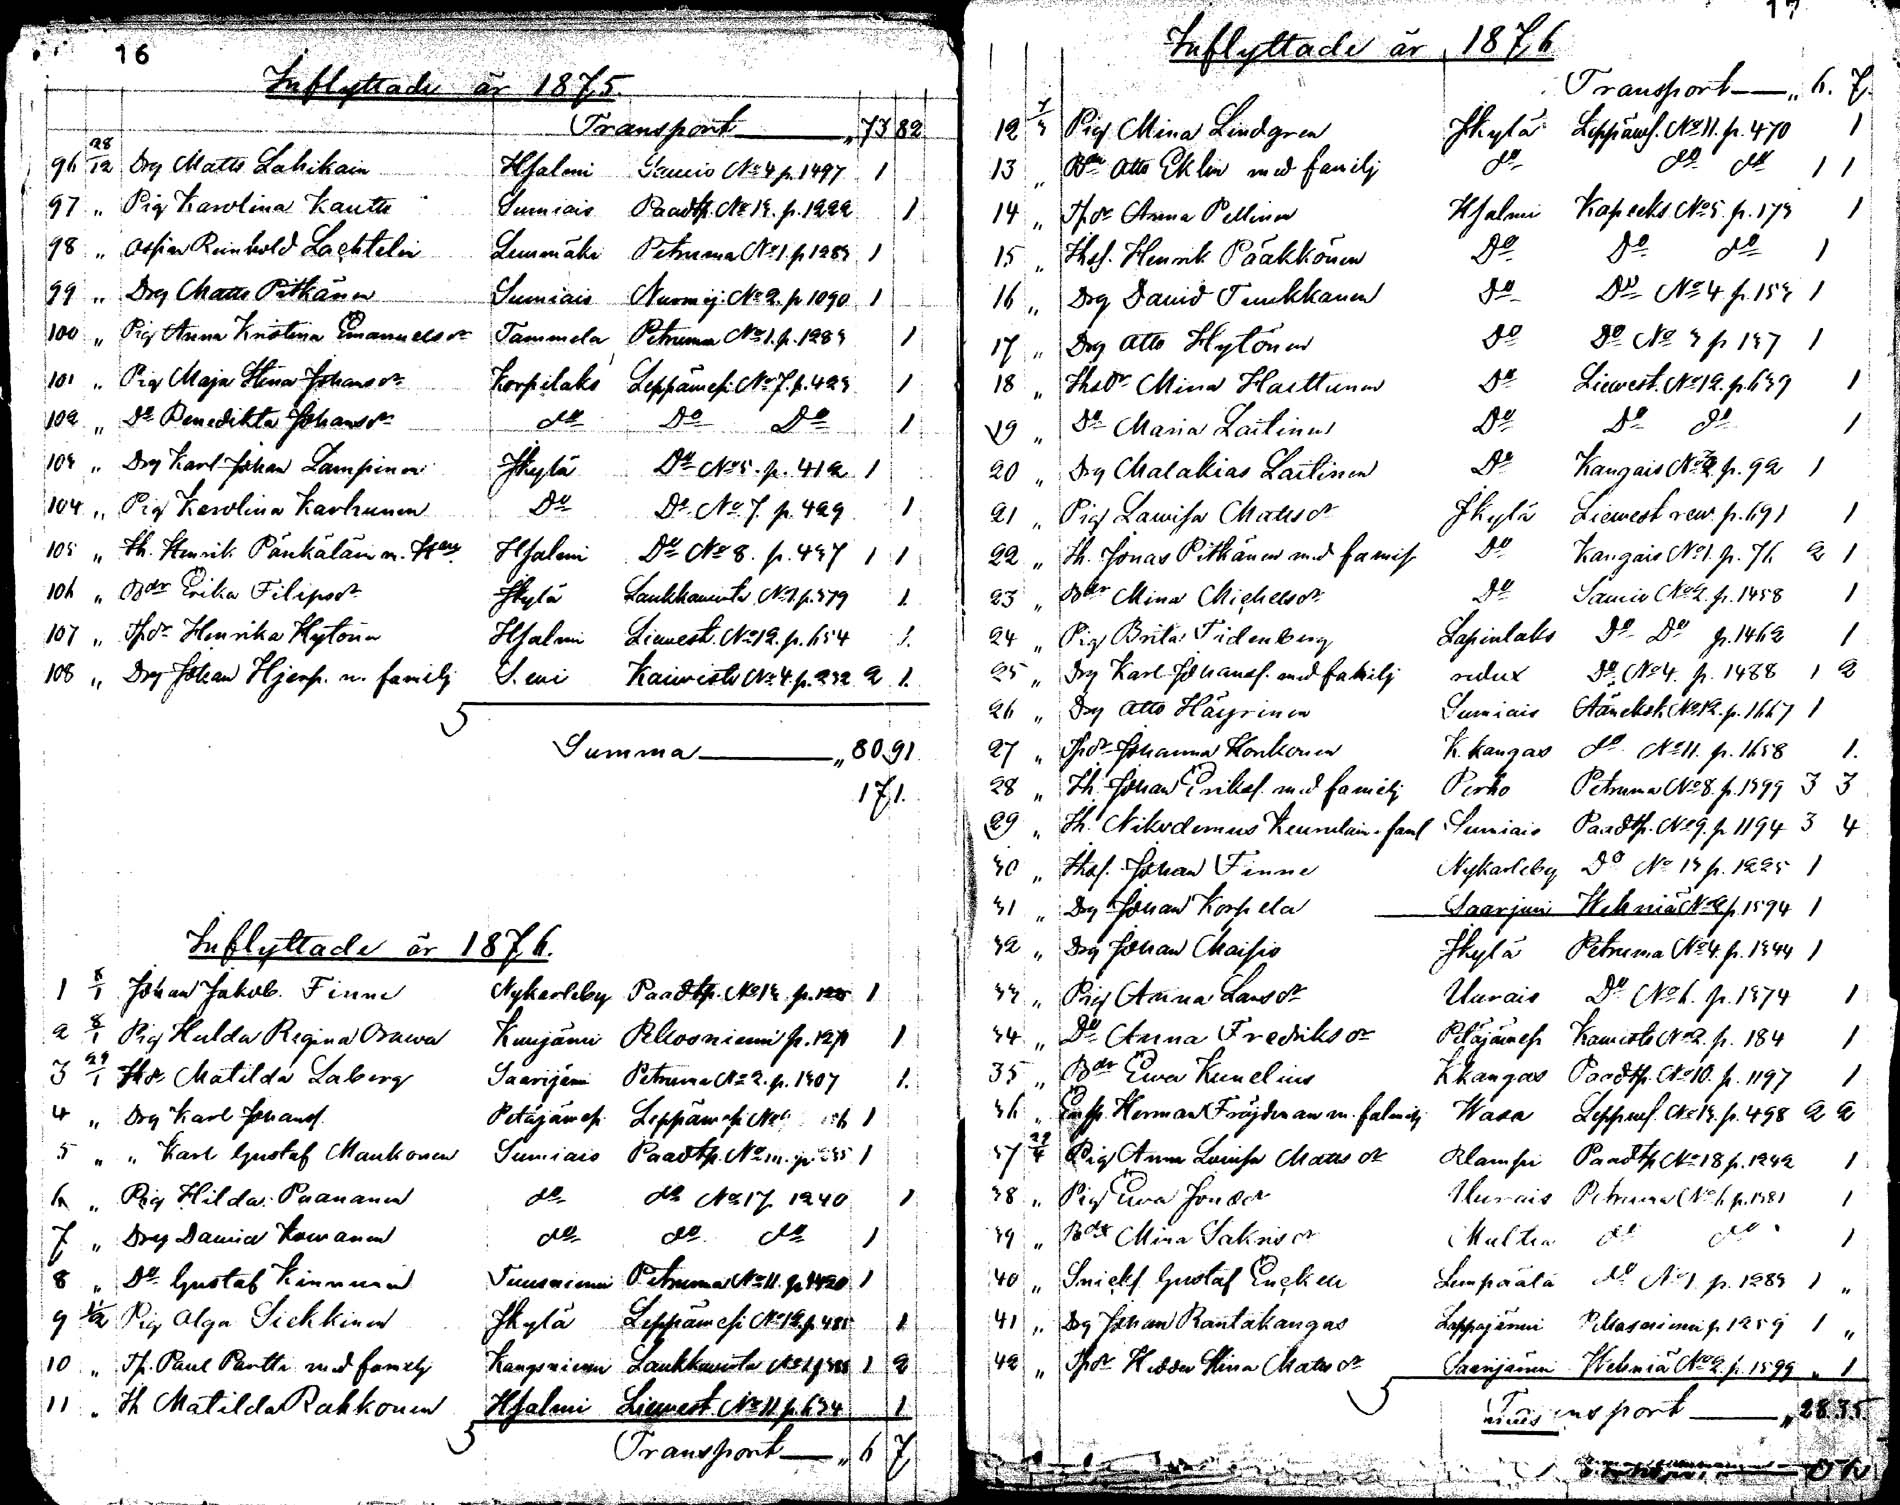 16
Inflyttade år 1875.
Transport „ 73 82
96 28/12 Drg Matts Lahikain Hjalmi No 4 p. 1497 1
97 „ Pig Karolina Kautto Sumiais Paadtp. No 13. p. 1222 1
98 „ Reinhold Lachtelin Petruma No 1. p 1283 1
99 „ Drg Matts Pitkänen Sumiais Nurmij. No 2. p. 1090 1
100 „ Pig Anna Kristina Emanuelsdr Tammela Petruma No 1. p. 1283 1
101 „ Pig Maja Stina Johansdr Korpilaks Leppämesp. No 7. p. 423 1
102 „ Do Benedikta Johansdr do Do Do 1
103 „ Drg Karl Johan Lampinen Jkylä Do No 5. p. 412 1
104 „ Pig Karolina Karhunen Do Do No 7. p. 429 1
105 „ Ih. Henrik Pänkäläin m. Hjalmi Do No 8. p. 437 1 1
106 „ Bdr Erika Filipsdr Jkylä No 1. p. 379 1
107 „ Tpdr Henrika Hytönen Hjalmi Liewest. No 12. p. 654 1.
108 „ Drg Johan Hjerp. m. familj Kaiwisto No 4. p. 232 2 1.
Summa „ 80 91
171.
Inflyttade år 1876.
1 8/1 Johan Jakob. Finne Nykarleby Paadtp. No 13. 1
2 8/1 Pig Hulda Regina Orawa Pelkosniemi p. 1271 1
3 29/1 Matilda Laberg Saarijärvi Petruma No 2. p. 1307 1.
4 „ Drg Karl Johansf. Petäjämesi Leppämesi 1
5 „ „ Karl Gustaf Maukonen Sumiais Paadtp. 1
6 „ Pig Hilda Paananen do do No 17 1240 1
7 „ Drg Dawid Kowanen do do do 1
8 „ Do Gustaf Kinnunen Tuusniemi Petruma No 11. p. 1420 1
9 1/2 Pig Olga Siekkinen Jkylä Leppämesi No 12. p. 485 1
10 „ Tp. Paul Partti med familj Kangsniemi No 1 1 2
11 „ Ih Matilda Rahkonen Hjalmi Liewest. No 11. p. 634 1
Transport „ 6 7
17
Inflyttade år 1876
Transport „ 6. 7.
12 7/3 Pig Mina Lindgren Jkylä Leppämf. No 11. p. 470 1
13 „ Bdr Otto Eklin med familj do do do 1 1
14 „ Tpdr Anna Pellinen Hjalmi No 5. p. 173 1
15 „ Ihsf. Henrik Pääkkönen Do Do do 1
16 „ Drg David Tenkkanen Do Do No 4 p. 153 1
17 „ Drg Otto Hytönen Do Do No 3 p 137 1
18 „ Ihsdr Mina Hasttunen Do Liewest. No 12. p. 639 1
19 „ Do Maria Laitinen Do Do do 1
20 „ Drg Malakias Laitinen Do Kangais No 2 p. 92 1
21 „ Pig Lawisa Matsdr Jkylä Liewest rew. p. 691 1
22 „ Ih. Jonas Pitkänen med familj Do Kangais No 1. p. 76 2 1
23 „ Bdr Mina Michelsdr Do No 2. p. 1458 1
24 „ Pig Brita Tidenberg Lapinlaks Do Do p. 1462 1
25 „ Drg Karl Johansf. med familj redux Do No 4. p. 1488 1 2
26 „ Drg Otto Häyrinen Sumiais Äänekosk. No 12. p. 1667 1
27 „ Tpdr Johanna Konkonen K. kangas do No 11. p. 1658 1.
28 „ Ih. Johan Eriksf. med familj Perho Petruma No 8. p. 1399 3 3
29 „ Ih. Nikodemus Keurulain m. faml Sumiais Paadtp. No 9. p 1194 3 4
30 „ Ihsf. Johan Finne Nykarleby Do No 13 p. 1225 1
31 „ Drg Johan Korpela Saarijärvi Wehniä No 2 p. 1594 1
32 „ Drg Johan Maipio Jkylä Petruma No 4. p. 1344 1
33 „ Pig Anna Larsdr Uurais Do No 6. p. 1374 1
34 „ Do Anna Fredriksdr Petäjämesi Kaiwisto No 2. p. 184 1
35 „ Bdr Ewa Kunelius K.kangas Paadtp. No 10. p. 1197 1
36 „ Herman Fröjdman m. familj Wasa Leppmf. No 13. p. 498 2 2
37 29/4 Pig Anna Lowisa Matsdr Klampi Paadtp No 18 p. 1242 1
38 „ Pig Ewa Jonsdr Uurais Petruma No 6. p. 1381 1
39 „ Bdr Mina Sakrisdr Multia do do 1
40 „ Snickf Gustaf Encken Lempäälä do No 1. p. 1283 1 „
41 „ Drg Johan Rantakangas Lappajärvi Pelkosniemi p 1259 1 „
42 „ Tpdr Hedda Stina Matsdr Saarijärvi Wehniä No 2. p. 1599 „ 1
Transport „ 28 35